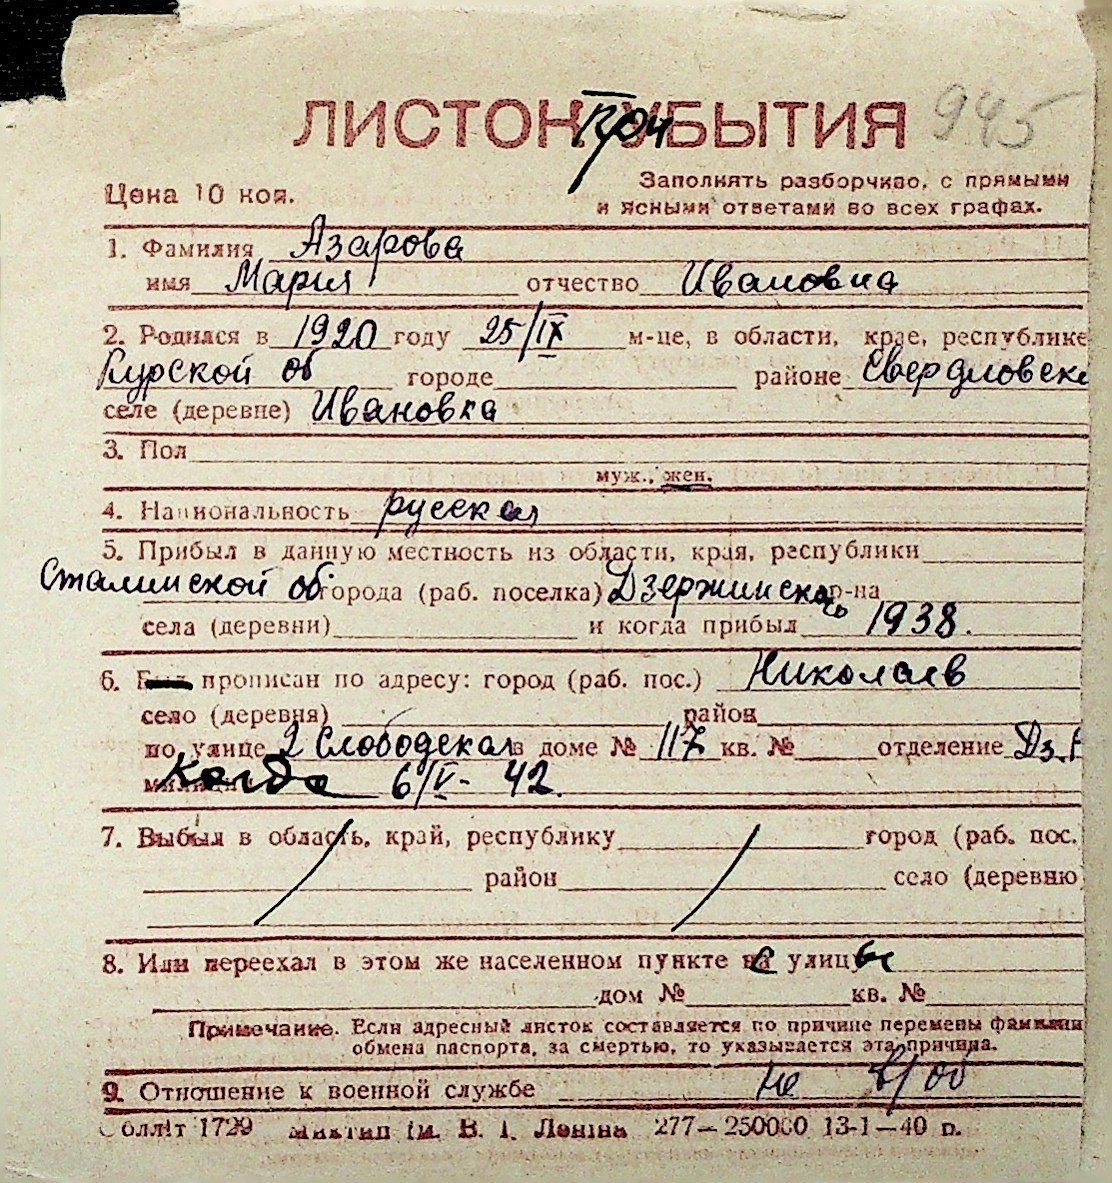 ЛИСТОК УБЫТИЯ 945
Цена 10 коп.
Заполнять разборчиво, с прямыми
и ясными ответами во всех графах.
1. Фамилия Азарова
имя Мария отчество Ивановна
2. Родился в 1920 году 25/IX м-це, в области, крае, республике
Курской об городе районе Свердловск
селе (деревне) Ивановка
3. Пол
муж., жен.
4. Национальность русская
5. Прибыл в данную местность из области, края, республики
Сталинской об. города (раб. поселка) Дзержинского р-на
села (деревни) и когда прибыл 1938.
6. прописан по адресу: город (раб. пос.) Николаев
село (деревня) район
по улице 2 Слободская в доме № 117 кв. № отделение Дз.
милиции Когда 6/V- 42.
7. Выбыл в область, край, республику город (раб. пос.
район село (деревню)
8. Или переехал в этом же населенном пункте с улицы
дом № кв. №
Примечание. Если адресный листок составляется по причине перемены фамилии
обмена паспорта, за смертью, то указывается эта причина.
9. Отношение к военной службе не в/об
Обллiт 1729 iм. В. I. Ленiна 277—250000 13-1—40 р.